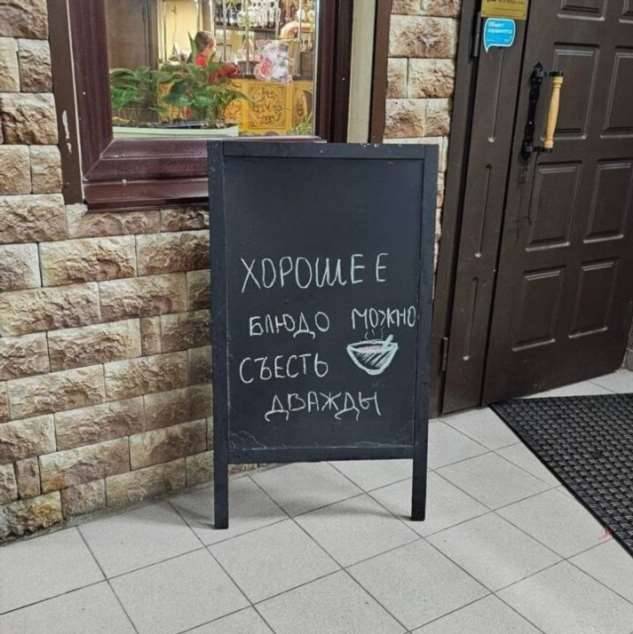 ХОРОШЕЕ
БЛЮДО МОЖНО
СЪЕСТЬ
ДВАЖДЫ